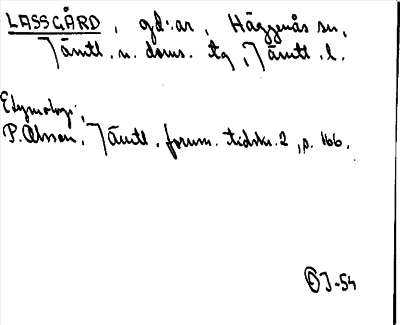 LASSGÅRD, gd:ar, Häggenås sn,
Jämtl. n. doms. tg, Jämtl. l.
Etymologi:
P. Olsson, Jämtl. fornm. tidskr. 2, p. 166.
OJ-54